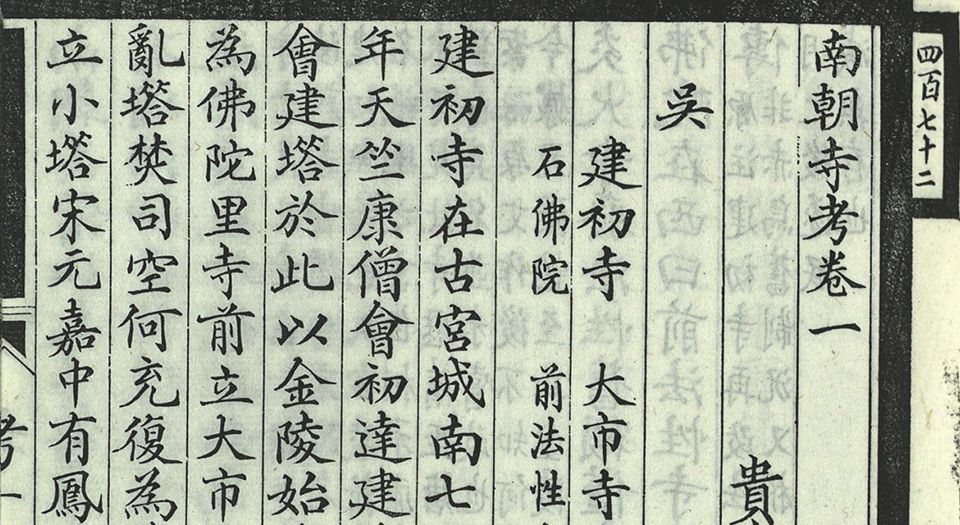 四百七十二
南朝寺考卷一
貴
吳
建初寺 大市寺
石佛院 前法性
建初寺在古宮城南七
年天竺康僧會初達建
會建塔於此以金陵始
為佛陀里寺前立大市
亂塔焚司空何充復為
立小塔宋元嘉中有鳳
考一